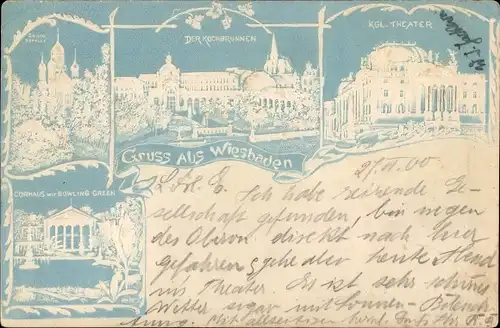 GRIECH. KAPELLE
DER KOCHBRUNNEN
KGL. THEATER
Gruss Aus Wiesbaden
CORHAUS MIT BOWLING GREEN
27. 00
L. E. Ich habe reizende Ge-
sellschaft gefunden, bin wegen
des Oberon direkt nach hier
gefahren, gehe also heute Abend
ins Theater. Es ist sehr schönes
Wetter sogar mit Sonnen-Beleuch
tung. Mit allseitigen